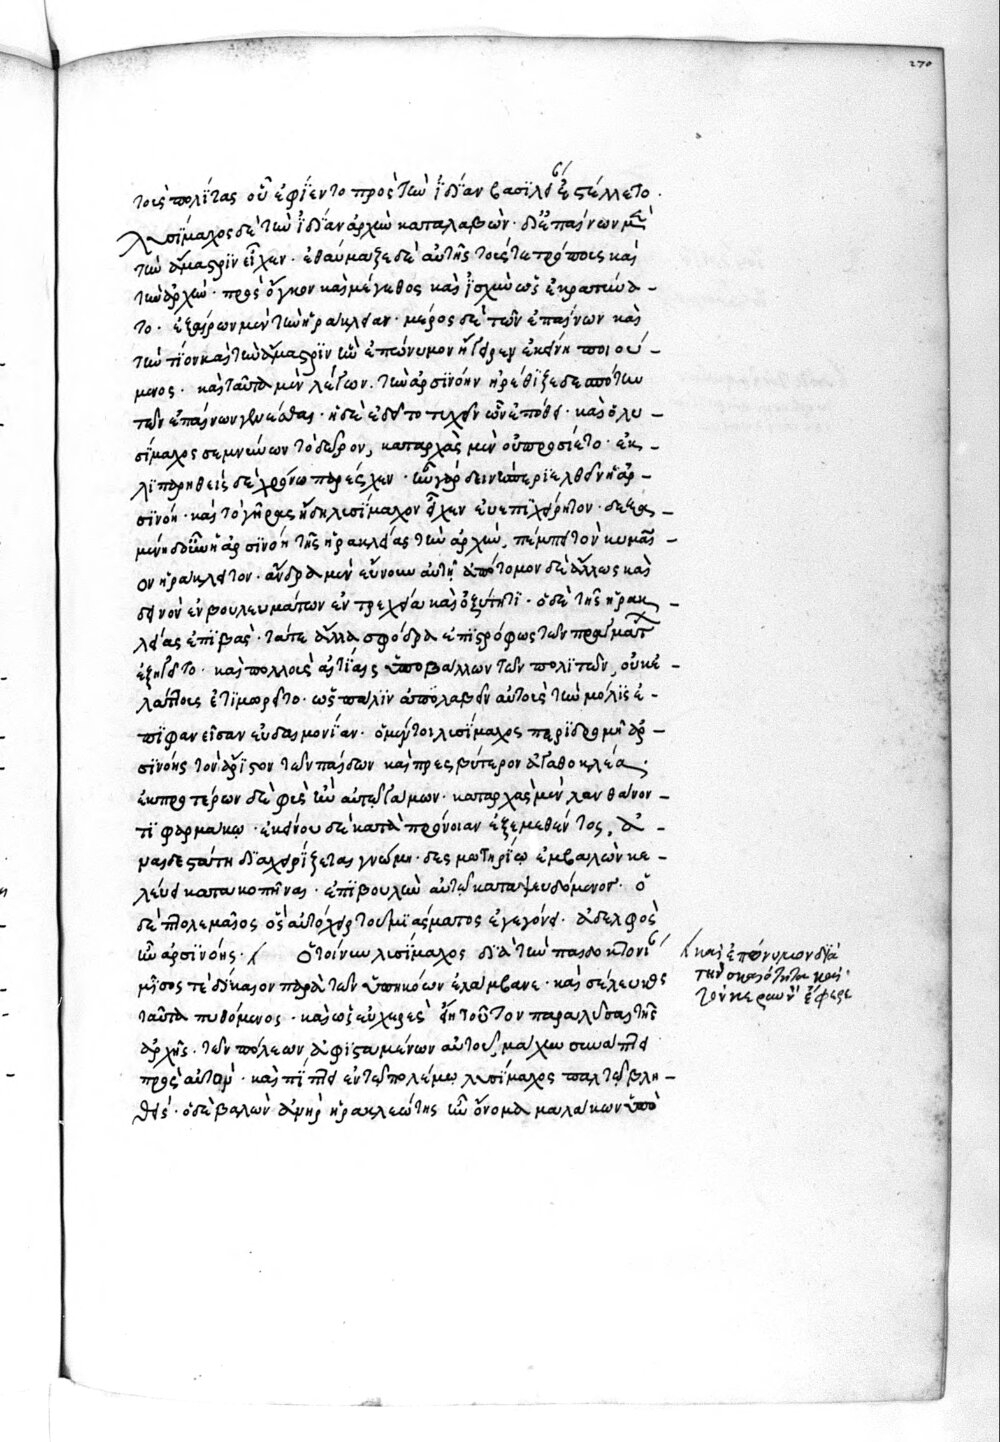 τοῖς πολίταις οὗ ἐφίεντο πρὸς τὴν ἰδίαν βασιλεί ἐστέλλετο.
λυσίμαχος δὲ τὴν ἰδίαν ἀρχὴν καταλαβὼν· δι' ἐπαίνων μὲν
τὴν ἄμαστριν εἶχεν· ἐθαύμαζε δὲ αὐτῆς τούς τε τρόπους καὶ
τὴν ἀρχὴν· πρὸς ὄγκον καὶ μέγεθος καὶ ἰσχὺν ὡς ἐκρατύνα-
το· ἐξαίρων μὲν τὴν ἡράκλειαν· μέρος δὲ τῶν ἐπαίνων καὶ
τὴν τῖον καὶ τὴν ἄμαστριν ἣν ἐπώνυμον ἤγειρεν ἐκείνη ποιού-
μενος· καὶ ταῦτα μὲν λέγων. τὴν ἀρσινόην ἠρέθιζε δεσπότιν
τῶν ἐπαινουμένων γενέσθαι· ἡ δὲ ἐδεῖτο τυχεῖν ὧν ἐπόθει· καὶ ὁ λυ-
σίμαχος σεμνύνων τὸ δῶρον, καταρχὰς μὲν οὐ προσίετο· ἐκ-
λιπαρηθεὶς δὲ χρόνω παρέσχεν· ἦν γὰρ δεινὴ περιελθεῖν ἡ ἀρ-
σινόη· καὶ τὸ γῆρας ἤδη λυσίμαχον εἶχεν εὐεπιχείρητον· δεξα-
μένη δ' οὖν ἡ ἀρσινόη τῆς ἡρακλείας τὴν ἀρχὴν, πέμπει τὸν κυμαῖ-
ον ἡράκλειτον· ἄνδρα μὲν εὔνουν αὐτῇ ἀπότομον δὲ ἄλλως καὶ
δεινὸν ἐν βουλευμάτων ἐντρεχείᾳ καὶ ὀξύτητι· ὁ δὲ τῆς ἡρακ-
λείας ἐπιβὰς· τά τε ἄλλα σφόδρα ἐπιστρόφως τῶν πραγμάτ
ἐξηγεῖτο· καὶ πολλοὺς αἰτίαις ὑποβάλλων τῶν πολιτῶν, οὐκ ἐ-
λάττους ἐτιμωρεῖτο· ὡς πάλιν ἀπολαβεῖν αὐτοὺς τὴν μόλις ἐ-
πιφανεῖσαν εὐδαιμονίαν· ὁ μέντοι λυσίμαχος περιδρομῇ ἀρ-
σινόης τὸν ἄριστον τῶν παίδων καὶ πρεσβύτερον ἀγαθοκλέα·
ἐκ προτέρων δὲ φὺς ἦν αὐτῷ γάμων· καταρχὰς μὲν λανθάνον-
τι φαρμάκῳ· ἐκείνου δὲ κατὰ πρόνοιαν ἐξεμεθέντος, ἀ-
ναιδεστάτῃ διαχειρίζεται γνώμῃ· δεσμωτηρίῳ ἐμβαλὼν κε-
λεύει κατακοπῆναι· ἐπιβουλὴν αὐτῷ καταψευδόμενος. ὁ
δὲ πτολεμαῖος ὃς αὐτόχειρ τοῦ μιάσματος ἐγεγόνει· ἀδελφὸς
ἦν ἀρσινόης· ὁ τοίνυν λυσίμαχος διὰ τὴν παιδοκτονί
μῖσός τε δίκαιον παρὰ τῶν ὑπηκόων ἐλάμβανε· καὶ σέλευκος
ταῦτα πυθόμενος· καὶ ὡς εὐχερὲς εἴη τοῦτον παραλῦσαι τῆς
ἀρχῆς· τῶν πόλεων ἀφισταμένων αὐτοῦ, μάχην συνάπτει
πρὸς αὐτὸν· καὶ πίπτει ἐν τῷ πολέμῳ λυσίμαχος παλτῷ βλη-
θείς· ὁ δὲ βαλὼν ἀνὴρ ἡρακλεώτης ἦν ὄνομα μαλάκων ὑπὸ
καὶ ἐπώνυμον διὰ
τὴν σκαιότητα καὶ
τὸν κεραυνὸν ἔφερε
270